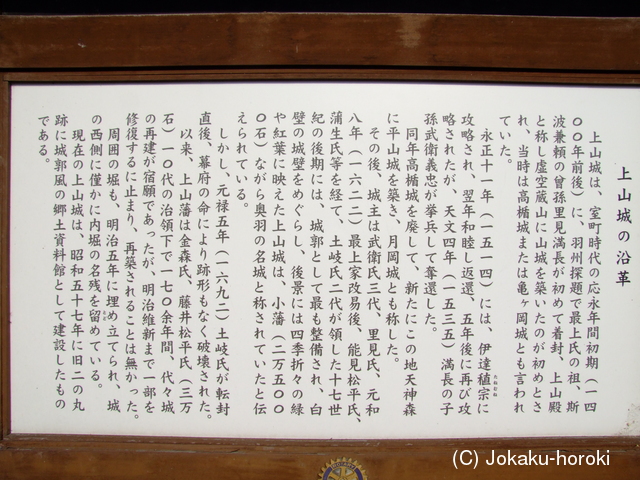 上山城の沿革
上山城は、室町時代の応永年間初期（一四
〇〇年前後）に、羽州探題で最上氏の祖、斯
波兼頼の曾孫里見満長が初めて着封、上山殿
と称し虚空蔵山に山城を築いたのが初めとさ
れ、当時は高楯城または亀ヶ岡城とも言われ
ていた。
永正十一年（一五一四）には、伊達稙宗に
攻略され、翌年和睦し返還、五年後に再び攻
略されたが、天文四年（一五三五）満長の子
孫武衛義忠が挙兵して奪還した。
同年高楯城を廃して、新たにこの地天神森
に平山城を築き、月岡城とも称した。
その後、城主は武衛氏三代、里見氏、元和
八年（一六二二）最上家改易後、能見松平氏、
蒲生氏等を経て、土岐氏二代が領した十七世
紀の後期には、城郭として最も整備され、白
壁の城壁をめぐらし、後景には四季折々の緑
や紅葉に映えた上山城は、小藩（二万五〇〇
〇石）ながら奥羽の名城と称されていたと伝
えられている。
しかし、元禄五年（一六九二）土岐氏が転封
直後、幕府の命により跡形もなく破壊された。
以来、上山藩は金森氏、藤井松平氏（三万
石）一〇代の治領下で一七〇余年間、代々城
の再建が宿願であったが、明治維新まで一部を
修復するに止まり、再築されることは無かった。
周囲の堀も、明治五年に埋め立てられ、城
の西側に僅かに内堀の名残を留めている。
現在の上山城は、昭和五十七年に旧二の丸
跡に城郭風の郷土資料館として建設したもの
である。
(C) Jokaku-horoki